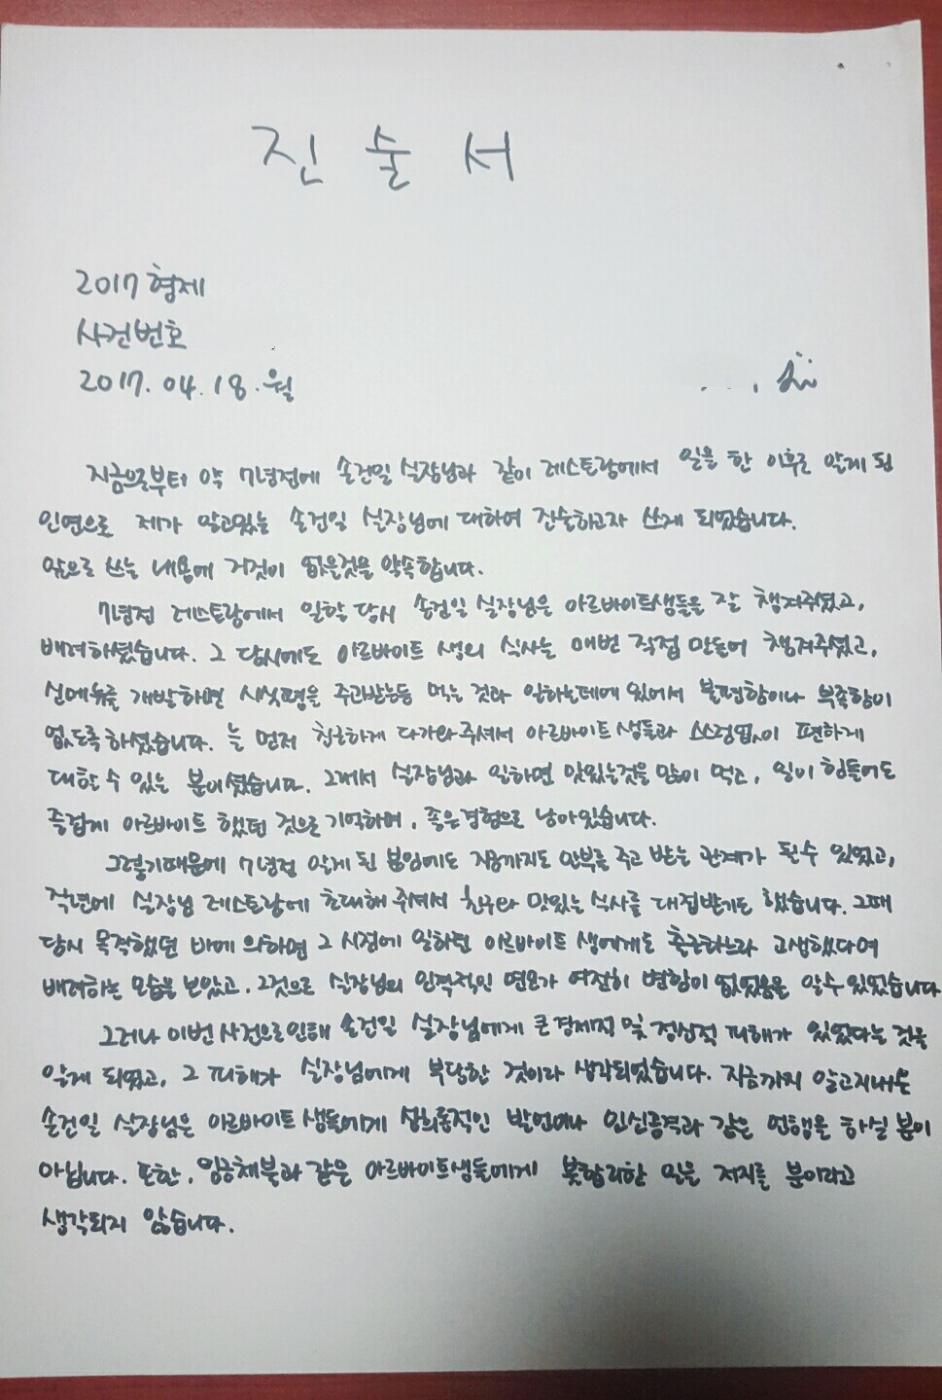 진 술 서
2017 형제
사건번호
2017. 04. 18. 월
지금으로부터 약 7년전에 손건일 실장님과 같이 레스토랑에서 일을 한 이후로 알게 된
인연으로 제가 알고있는 손건일 실장님에 대하여 진술하고자 쓰게 되었습니다.
앞으로 쓰는 내용에 거짓이 없을것을 약속합니다.
7년전 레스토랑에서 일할 당시 손건일 실장님은 아르바이트생들을 잘 챙겨주셨고,
배려하셨습니다. 그 당시에도 아르바이트 생의 식사는 매번 직접 만들어 챙겨주셨고,
신메뉴를 개발하면 시식평을 주고받는등 먹는 것과 일하는데에 있어서 불편함이나 부족함이
없도록 하셨습니다. 늘 먼저 친근하게 다가와주셔서 아르바이트 생들과 스스럼없이 편하게
대할 수 있는 분이셨습니다. 그래서 실장님과 일하면 맛있는것을 많이 먹고, 일이 힘들어도
즐겁게 아르바이트 했던 것으로 기억하며, 좋은경험으로 남아있습니다.
그렇기때문에 7년전 알게 된 분임에도 지금까지도 안부를 주고 받는 관계가 될수 있었고,
작년에 실장님 레스토랑에 초대해 주셔서 친구와 맛있는 식사를 대접받기도 했습니다. 그때
당시 목격했던 바에 의하면 그 시점에 일하던 아르바이트 생에게도 출근하느라 고생했다며
배려하는 모습을 보았고, 그것으로 실장님의 인격적인 면모가 여전히 변함이 없었음을 알수 있었습니다
그러나 이번 사건으로인해 손건일 실장님에게 큰 경제적 및 정신적 피해가 있었다는 것을
알게 되었고, 그 피해가 실장님에게 부당한 것이라 생각되었습니다. 지금까지 알고지내온
손건일 실장님은 아르바이트 생들에게 성희롱적인 발언이나 인신공격과 같은 언행을 하실 분이
아닙니다. 또한, 임금체불과 같은 아르바이트생들에게 불합리한 일을 저지를 분이라고
생각되지 않습니다.